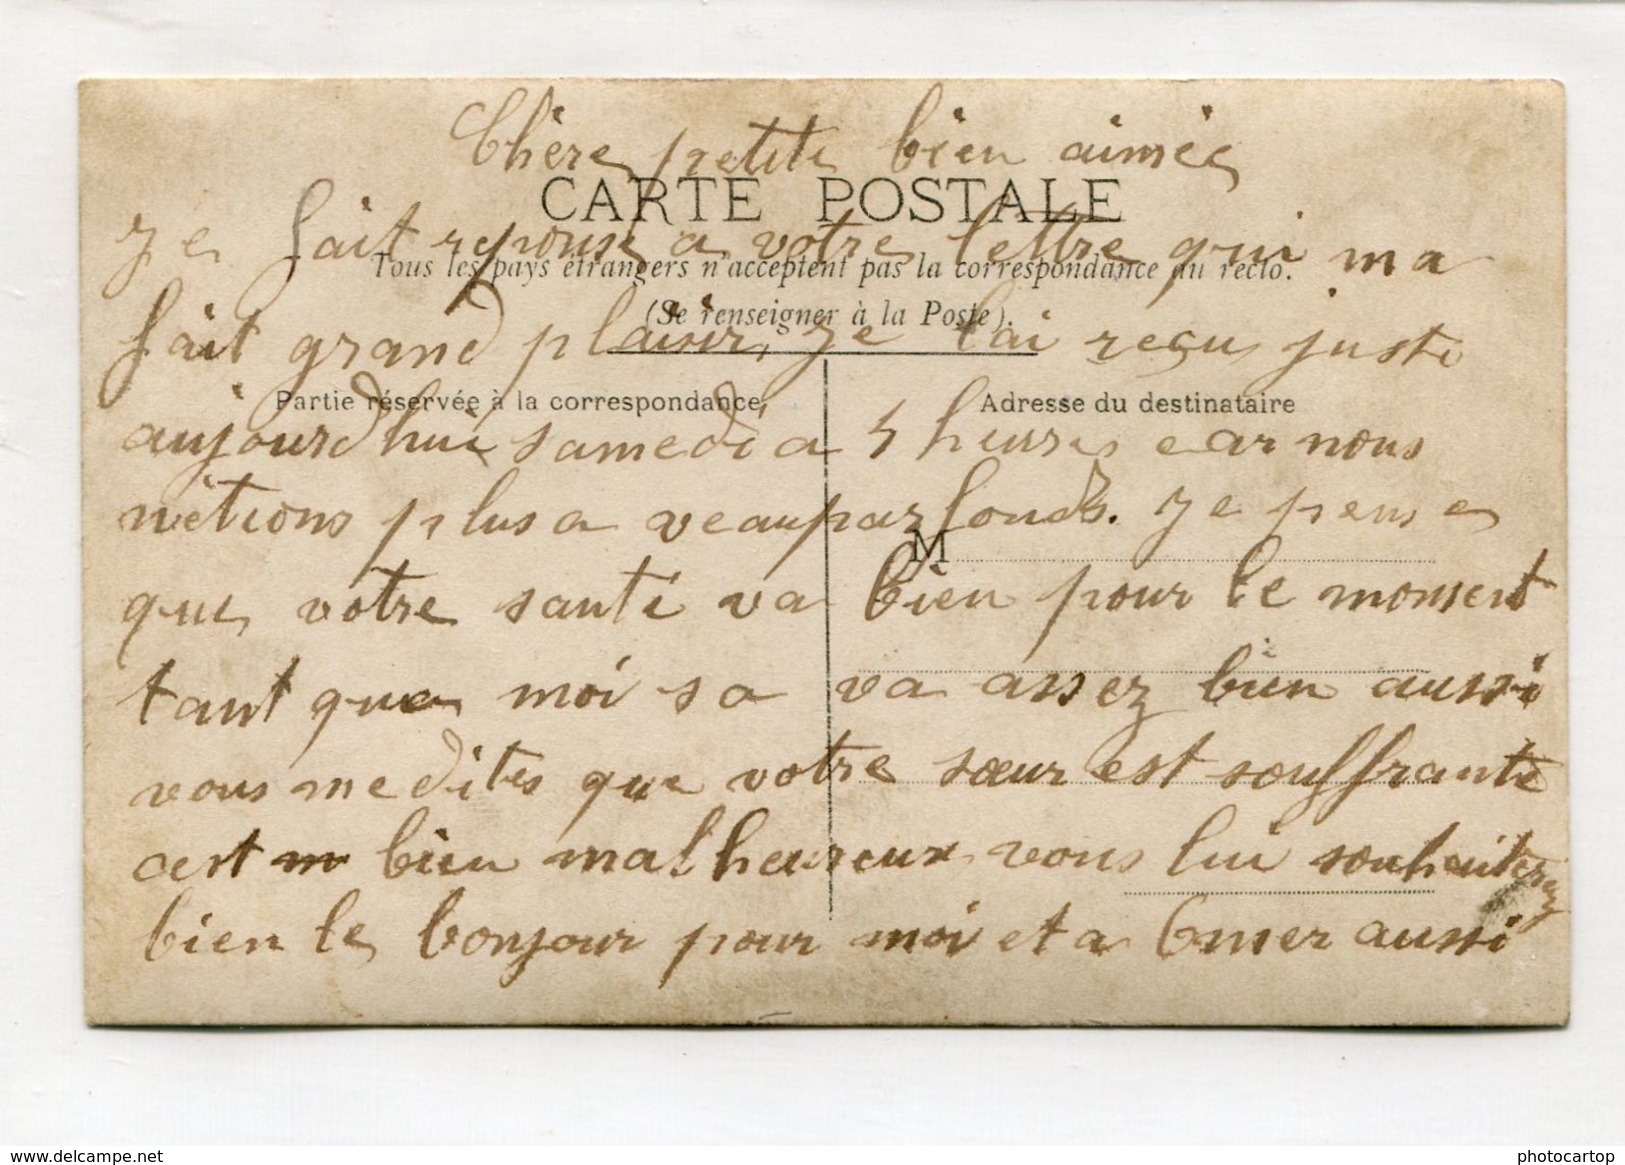 Chère petite bien aimée
CARTE POSTALE
Je fait reponse a votre lettre qui ma
Tous les pays étrangers n'acceptent pas la correspondance au recto.
(Se renseigner à la Poste).
fait grand plaisir, je lai reçus juste
Partie réservée à la correspondance
Adresse du destinataire
aujourdhui samedi a 5 heures car nous
nietions plus a veauparfonds. Je pense
M
que votre santé va bien pour le moment
tant que moi sa va assez bien aussi
vous me dites que votre sœur est souffrante
cest bien malheureux, vous lui souhaiterez
bien le bonjour pour moi et a Omer aussi
delcampe.net
photocartop